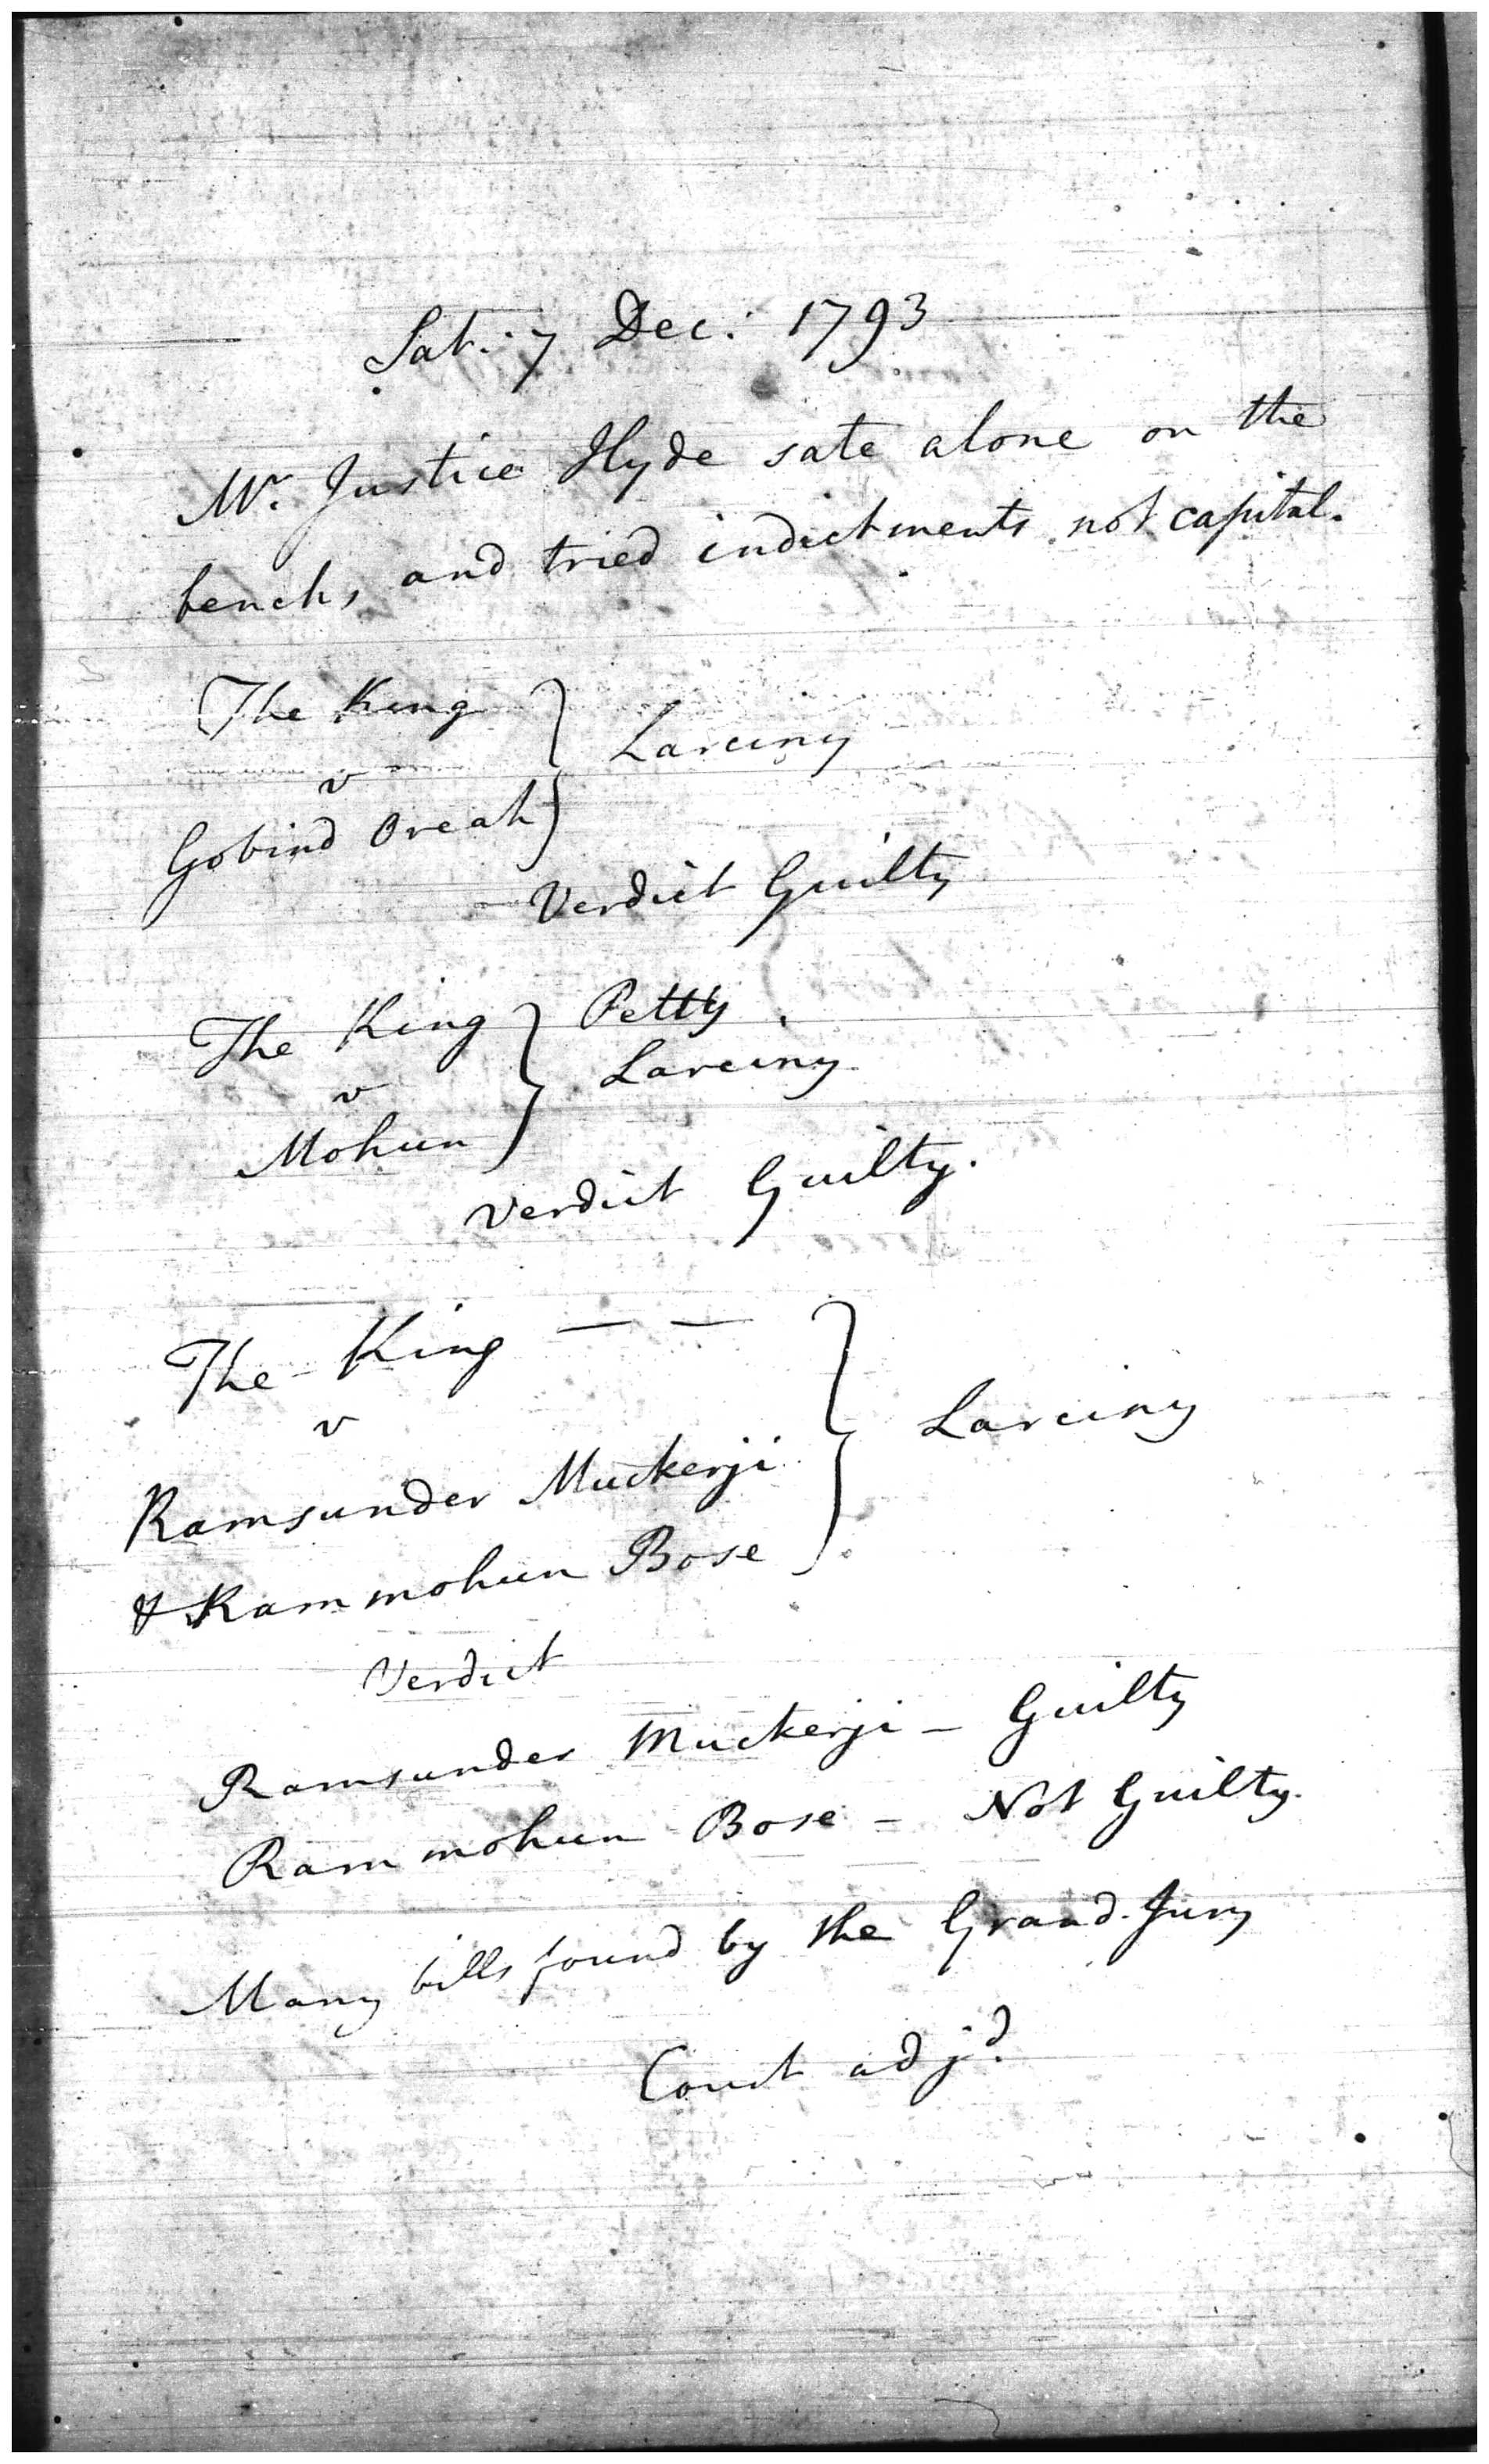 Sat. 7 Dec: 1793
Mr. Justice Hyde sate alone on the
bench, and tried indictments not capital.
The King
v
Gobind Oreah } Larciny
Verdict Guilty
The King } Petty
v Larciny
Mohun
Verdict Guilty.
The King — —
v
Ramsunder Muckerji } Larciny
& Rammohun Bose
Verdict
Ramsunder Muckerji - Guilty
Rammohun Bose - Not Guilty.
Many bills found by the Grand-Jury
Court adjd.